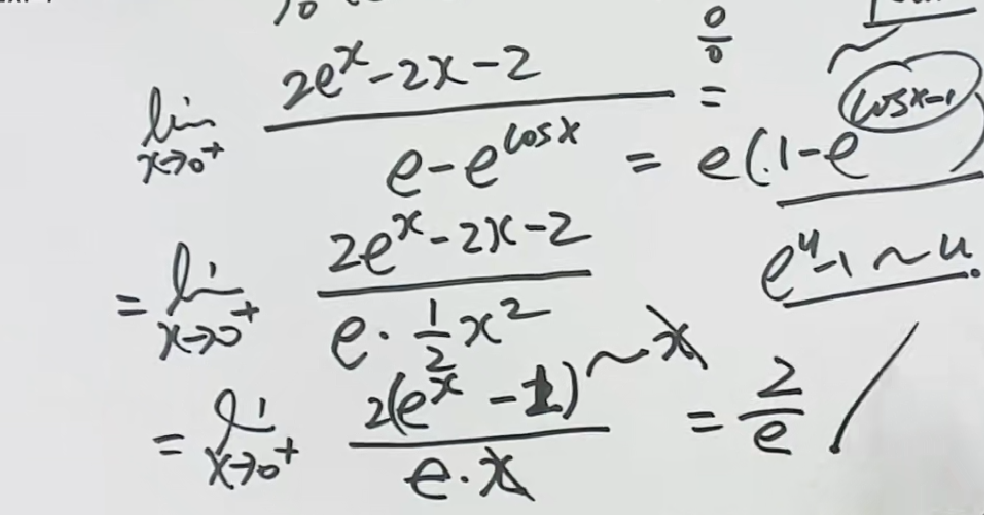 lim x→0⁺ (2eˣ-2x-2)/(e-e^{cosx}) 0/0 =
= e(1-e^{cosx-1})
= lim x→0⁺ (2eˣ-2x-2)/(e·½x²)
eᵘ-1~u.
= lim x→0⁺ 2(eˣ-1)~x/(e·x) = 2/e